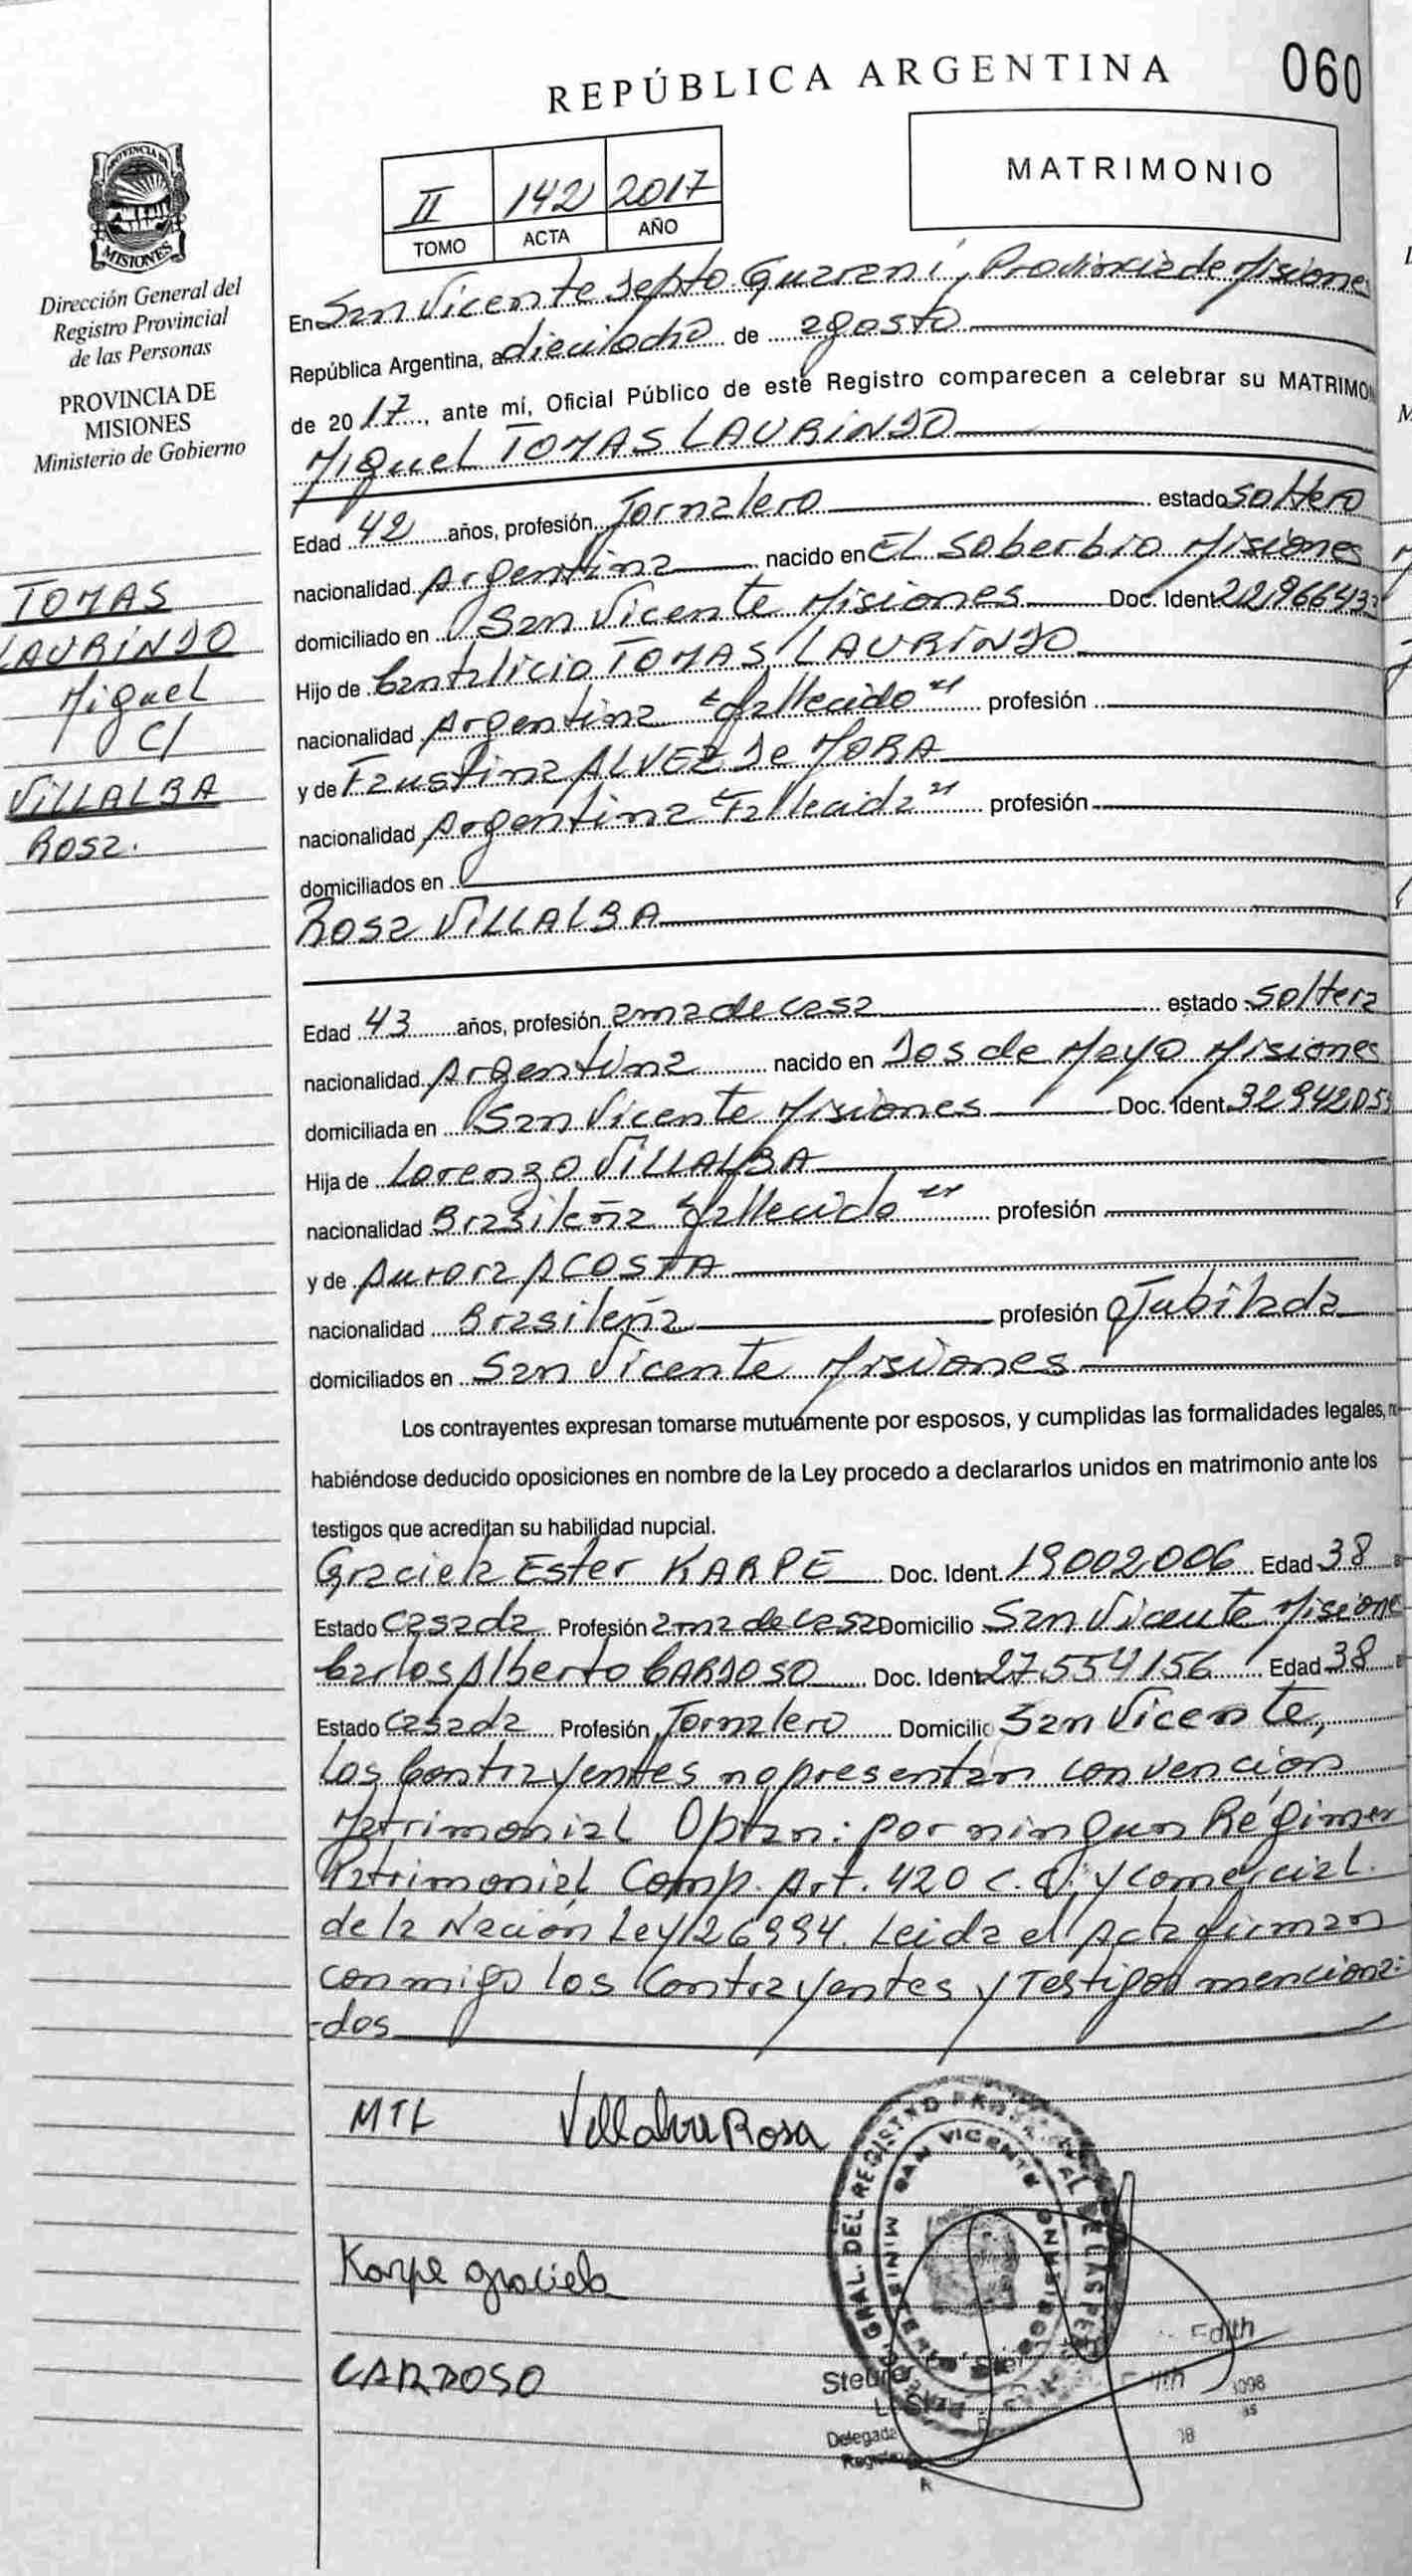 REPÚBLICA ARGENTINA
060
PROVINCIA DE
MISIONES
Dirección General del
Registro Provincial
de las Personas
PROVINCIA DE
MISIONES
Ministerio de Gobierno
II 142 2017
TOMO ACTA AÑO
MATRIMONIO
En San Vicente Depto. Guaraní, Provincia de Misiones
República Argentina, a dieciocho de agosto
de 2017, ante mí, Oficial Público de este Registro comparecen a celebrar su MATRIMO
Miguel TOMAS LAURINDO
TOMAS
LAURINDO
Miguel
C/
VILLALBA
Rosa.
Edad 42 años, profesión Jornalero estado soltero
nacionalidad Argentina nacido en EL Soberbio Misiones
domiciliado en San Vicente Misiones Doc. Ident.
Hijo de Cantalicio TOMAS LAURINDO
nacionalidad Argentina "fallecido" profesión
y de Faustina ALVEZ De MORA
nacionalidad Argentina "Fallecida" profesión
domiciliados en
Rosa VILLALBA
Edad 43 años, profesión ama de casa estado soltera
nacionalidad Argentina nacido en Dos de Mayo Misiones
domiciliada en San Vicente Misiones Doc. Ident.
Hija de Lorenzo VILLALBA
nacionalidad Brasileña "fallecido" profesión
y de Aurora ACOSTA
nacionalidad Brasileña profesión Jubilada
domiciliados en San Vicente Misiones
Los contrayentes expresan tomarse mutuamente por esposos, y cumplidas las formalidades legales,
habiéndose deducido oposiciones en nombre de la Ley procedo a declararlos unidos en matrimonio ante los
testigos que acreditan su habilidad nupcial.
Graciela Ester KARPE Doc. Ident. 19002006 Edad 38
Estado Casada Profesión ama de casa Domicilio San Vicente Misione
Carlos Alberto CARDOSO Doc. Ident 27.554156 Edad 38
Estado Casada Profesión Jornalero Domicilio San Vicente,
Los Contrayentes no presentan convención
Matrimonial Optan: por ningun Régimen
Patrimonial Comp. Art. 420 C.C. y Comercial.
de la Nación Ley 26994. Leida el Acta firman
conmigo los Contrayentes y Testigos menciona-
-dos
MTL Villalva Rosa
Karpe Graciela
CARDOSO
GRAL. DEL REGISTRO PROVINCIAL DE LAS PER
SAN VICENTE
Edith
Delegada